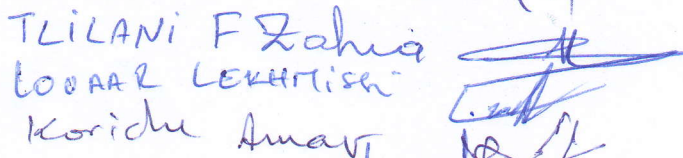 TLILANI F Zahia
LOUAAR LEKHMISSI
Koriche Amar